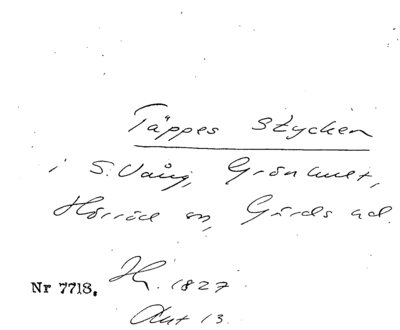 Täppes stycken
i S. Vång, Grönhult,
Hörröd sn, Gärds hd.
Nr 7718. Hs. 1827
Akt 13.